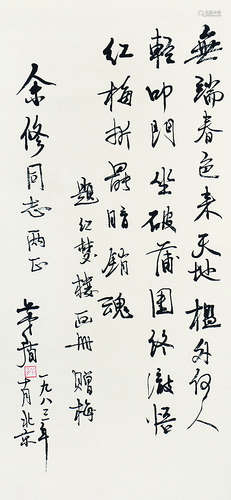 無端春色来天地檻外何人
輕叩門坐破蒲團終澈悟
红梅折罷暗銷魂
題红夢樓画册贈梅
余修同志两正
茅盾
一九八三年
月北京